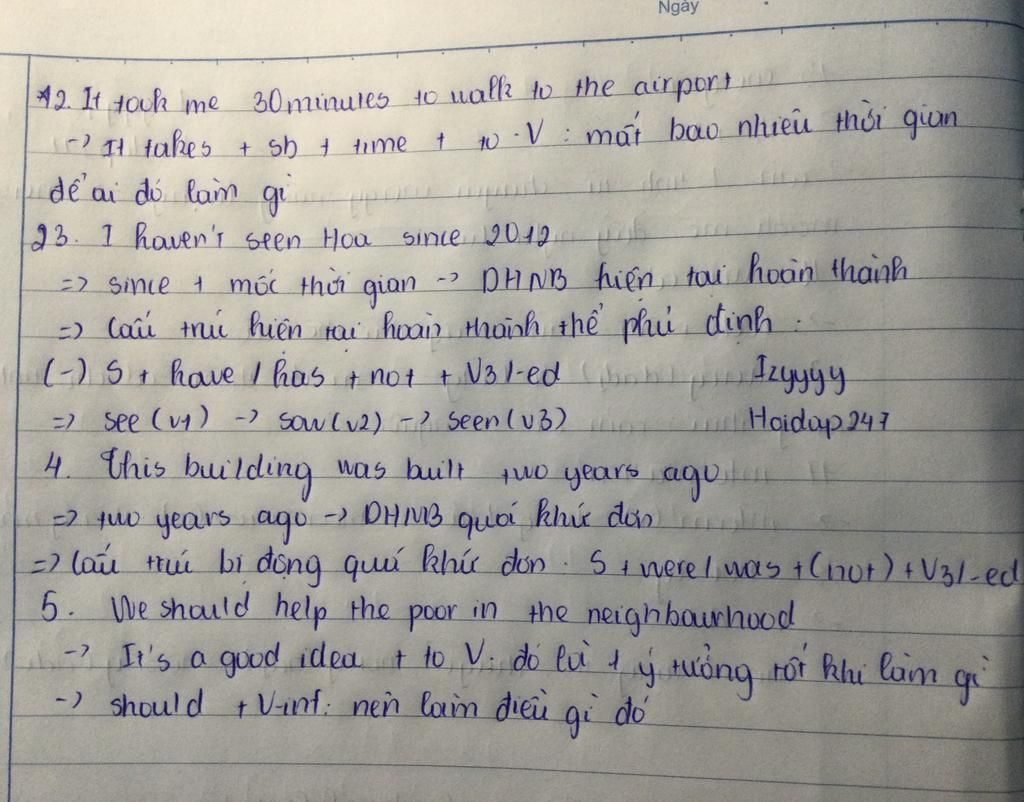 Ngày
12. It took me 30 minutes to walk to the airport
-> It takes + sb + time + to V : mất bao nhiêu thời gian
để ai đó làm gì
23. I haven't seen Hoa since 2012
=> since + mốc thời gian -> DHNB hiện tại hoàn thành
=> Cấu trú hiện tại hoàn thành thể phủ định :
(-) S + have / has + not + V3/-ed Izyyyy
=> see (v1) -> saw (v2) -> seen (v3) Hoidap247
4. This building was built two years ago
=> two years ago -> DHNB quá khứ đơn
=> Cấu trú bị động quá khứ đơn : S + were/was + (not) + V3/-ed
5. We should help the poor in the neighbourhood
-> It's a good idea + to V : đó là 1 ý tưởng tốt khi làm gì
-> should + V-inf : nên làm điều gì đó